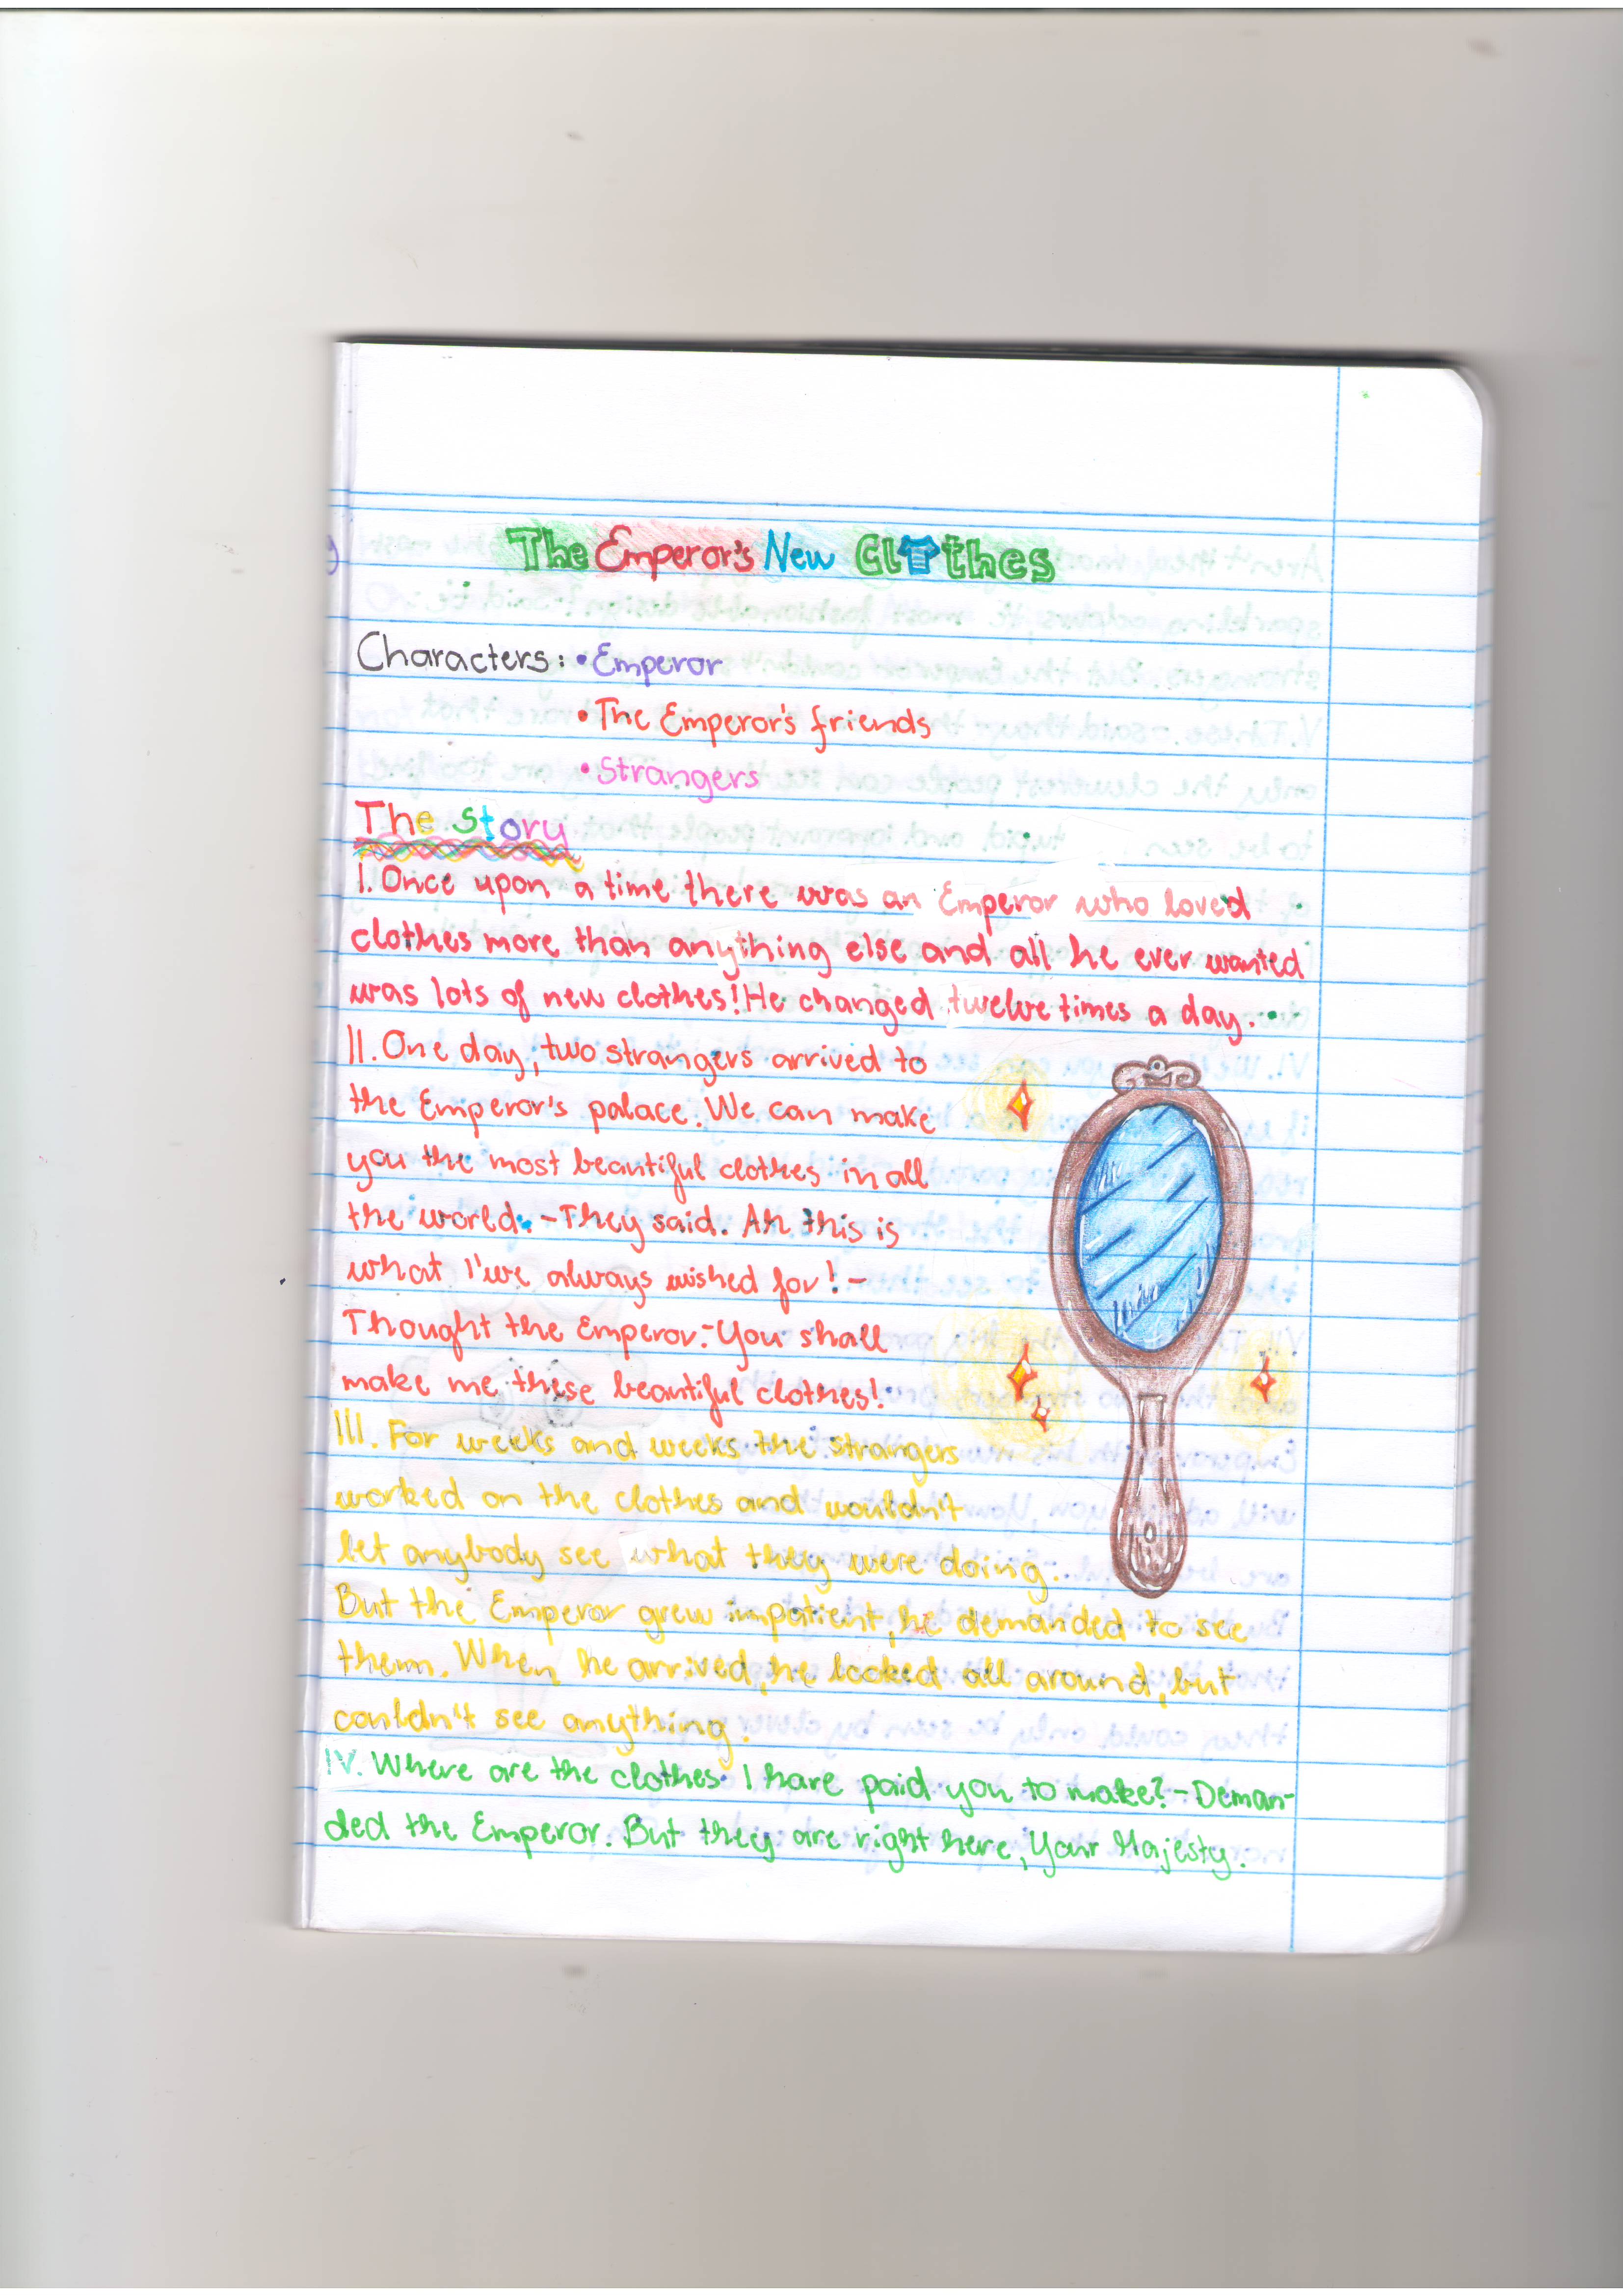 The Emperor's New Clothes
Characters: • Emperor
• The Emperor's friends
• Strangers
The story
I. Once upon a time there was an Emperor who loved
clothes more than anything else and all he ever wanted
was lots of new clothes! He changed twelve times a day.
II. One day, two strangers arrived to
the Emperor's palace. We can make
you the most beautiful clothes in all
the world. - They said. Ah this is
what I've always wished for! -
Thought the Emperor.- You shall
make me these beautiful clothes!
III. For weeks and weeks the strangers
worked on the clothes and wouldn't
let anybody see what they were doing.
But the Emperor grew impatient, he demanded to see
them. When he arrived, he looked all around, but
couldn't see anything.
IV. Where are the clothes I have paid you to make? - Deman-
ded the Emperor. But they are right here, Your Majesty.